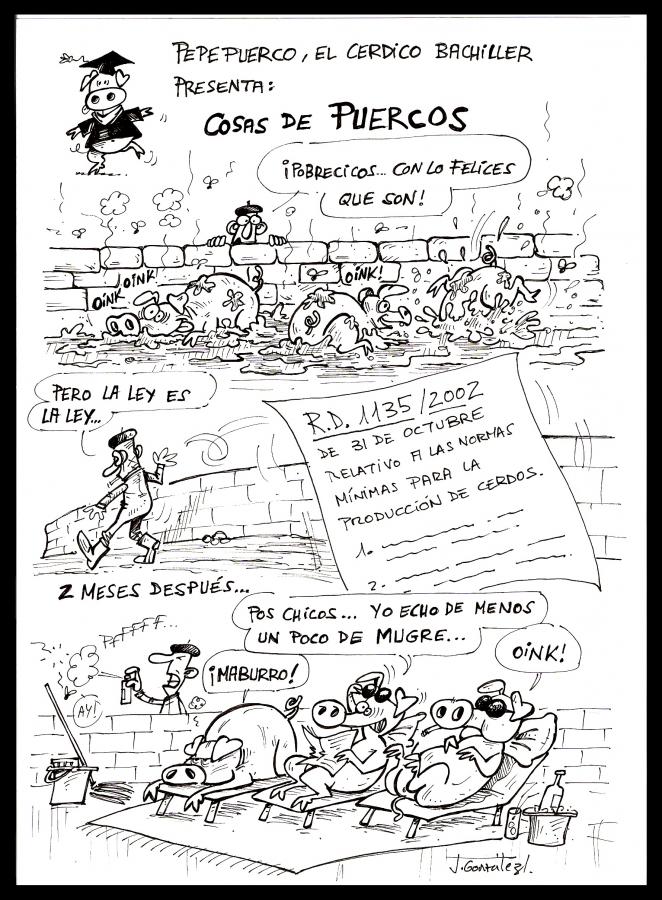 PEPEPUERCO, EL CERDICO BACHILLER
PRESENTA:
COSAS DE PUERCOS
¡POBRECICOS... CON LO FELICES
QUE SON!
OINK
¡OINK!
OINK!
PERO LA LEY ES
LA LEY...
R.D. 1135/2002
DE 31 DE OCTUBRE
RELATIVO A LAS NORMAS
MÍNIMAS PARA LA
PRODUCCIÓN DE CERDOS.
1.
2.
2 MESES DESPUÉS...
PFFFFFF...
POS CHICOS... YO ECHO DE MENOS
UN POCO DE MUGRE...
OINK!
¡MABURRO!
AY!
J. González